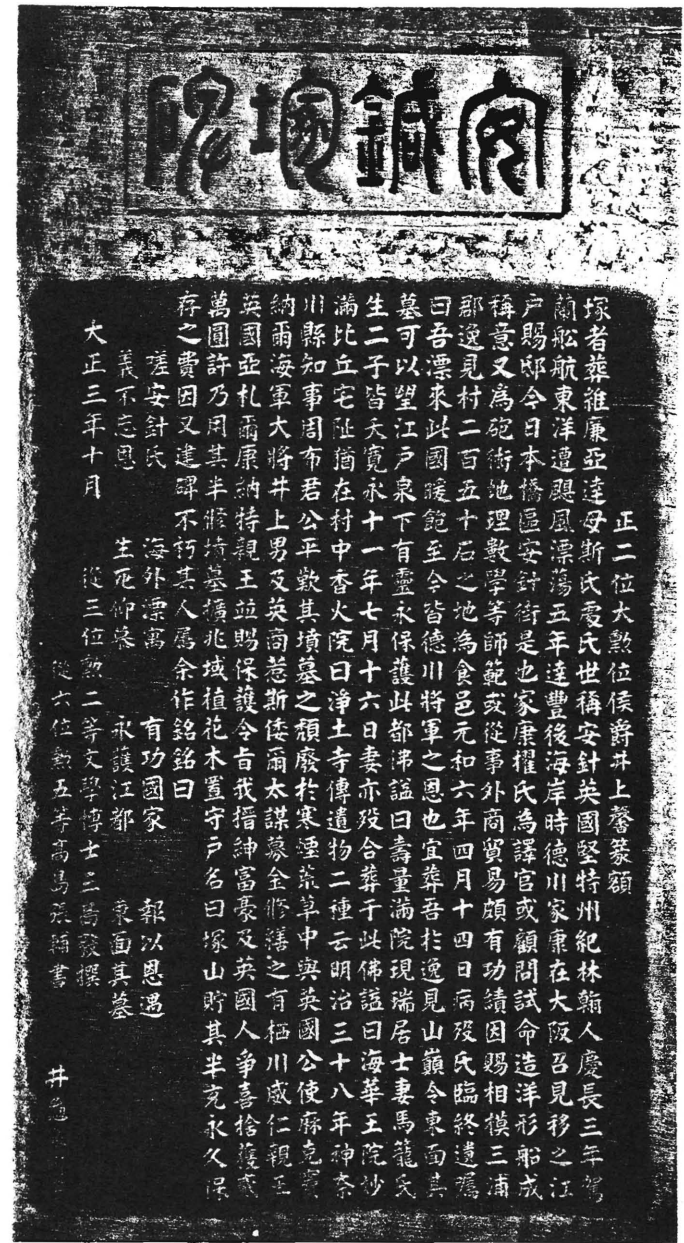 安鍼塚碑
正二位大勲位侯爵井上馨篆額
塚者葬維廉亞達母斯氏處氏世稱安針英國堅特州紀林翰人慶長三年駕
蘭舩航東洋遭颶風漂蕩五年達豐後海岸時德川家康在大阪召見移之江
戸賜邸今日本橋區安針街是也家康擢氏為譯官或顧問試命造洋形船成
稱意又為砲術地理數學等師範或從事外商貿易頗有功績因賜相摸三浦
郡逸見村二百五十石之地為食邑元和六年四月十四日病歿氏臨終遺囑
曰吾漂來此國暖飽至今皆德川將軍之恩也宜葬吾於逸見山巓令東面其
墓可以望江戸泉下有靈永保護此都佛謚曰壽量滿院現瑞居士妻馬籠氏
生二子皆夭寛永十一年七月十六日妻亦歿合葬于此佛謚曰海華王院妙
滿比丘宅阯猶在村中香火院曰淨土寺傳遺物二種云明治三十八年神奈
川縣知事周布君公平歎其墳墓之頽廢於寒煙荒草中與英國公使麻克實
納爾海軍大將井上男及英商惹斯倭爾太謀募金修繕之有栖川威仁親王
英國亞札爾康納特親王並賜保護令旨我搢紳富豪及英國人爭喜捨獲
萬圓許乃用其半修墳墓擴兆域植花木置守戸名曰塚山貯其半充永久保
存之費因又建碑不朽其人属余作銘銘曰
嗟安針氏 海外漂寓 有功國家 報以恩遇
義不忘恩 生死仰慕 永護江都 東面其墓
大正三年十月 從三位勲二等文學博士三島毅撰
從六位勲五等高島張輔書
井